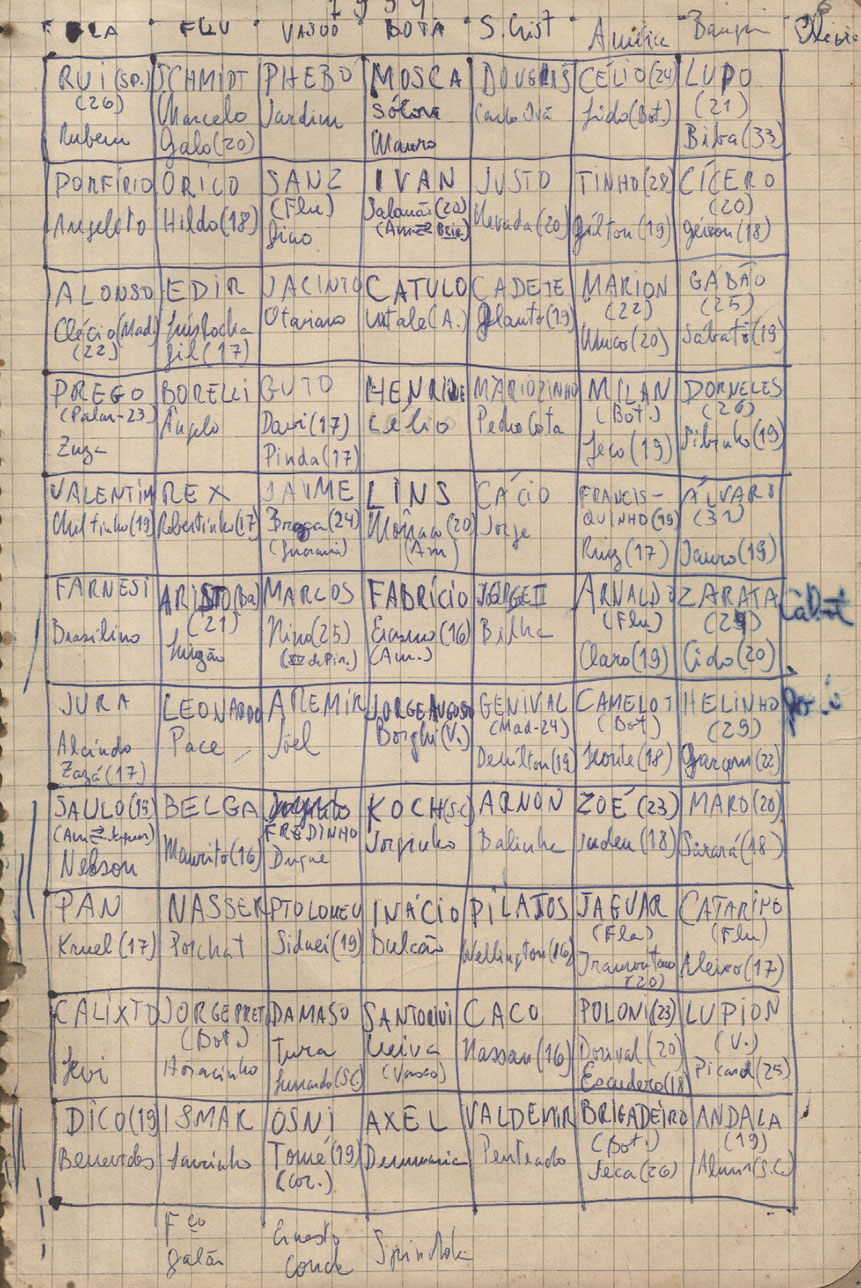 FLU VASCO BOTA S. Crist América Bangu
RUI (SP.) SCHMIDT PHEBO MOSCA DOUGLAS CÉLIO (24) LUPO
(26) Marcelo Jardim Sólon Carlo Ivã Lido (Bot.) (21)
Rubem Galo (20) Mauro Biba (33)
PORFÍRIO ORICO SANZ IVAN JUSTO TINHO (28) CÍCERO
Angeloto Hildo (18) (Flu) Salomão (20) Nevada (20) Gílton (19) (20)
Gino Géison (18)
ALONSO EDIR JACINTO CATULO CADETE MARION GABÃO
Clécio (Mad.) Otaviano Natale (A.) (22) (25)
(22) Gil (17) (20) Sábato (19)
PREGO BORELLI GUTO HENRIDE MARIOZINHO MILAN DORNELES
(Palm-23) Ângelo Davi (17) Célio Pedro Cota (Bot.) (26)
Zuza Pinda (17) Jeco (19) Sibinho (19)
VALENTIM REX JAIME LINS CÁCIO FRANCIS- ÁLVARO
Robertinho (17) Braga (24) Mônaco (20) Jorge QUINHO (19) (32)
(Guarani) (Am) Ruiz (17) Jauro (19)
FARNESI ARISTO (Ba) MARCOS FABRÍCIO JORGE II ARNALDO ZARATA
Brasilino (21) Nino (25) Erasmo (16) Bilha (Flu)
(XV de Pir.) (Am.) Claro (19) Cido (20)
JURA LEONARDO AREMIR JORGE AUGUSTO GENIVAL CAMELOT HELINHO
Alcindo Pace Jóel Borghi (V.) (Mad-24) (Bot) (29)
Zazá (17) Denílton (19) (18) Garçom (22)
SAULO (19) BELGA FREDINHO KOCH (S.C) ARNON ZOÉ (23) MARO (20)
Nelson Maurito (16) Duque Jorginho Balinha (18) Sarará (18)
PAN NASSER PTOLOMEU INÁCIO PILATOS JAGUAR CATARINO
Kruel (17) Porchat Sidnei (19) Dulcão Wellington (16) (Fla) (Flu)
Tramontano (20) Aleixo (17)
CALIXTO JORGE PRETO DAMASO SANTORINI CACO POLONI (23) LUPION
(Bot.) Tura Neiva Nassau (16) Dorival (20) (V.)
Levi Horacinho (SC) (Vasco) Escudero (18) Picard (25)
DICO (19) ISMAR OSNI AXEL VALDEMIR BRIGADEIRO ANDALA
Benevides Laurinho Tomé (19) Dinamarca Penteado (Bot.) (19)
(Cor.) Jeca (26) (S.C.)
Fco Ernesto Spindola
Galão Conde